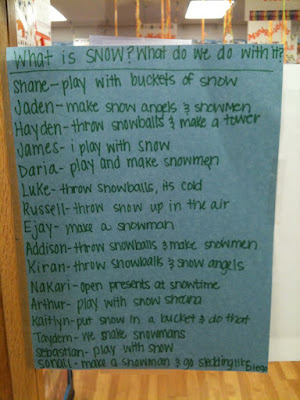 What is SNOW? What do we do with it?
Shane- play with buckets of snow
Jaden- make snow angels & snowmen
Hayden- throw snowballs & make a tower
James- i play with snow
Daria- play and make snowmen
Luke- throw snowballs, its cold
Russell- throw snow up in the air
Ejay- make a snowman
Addison- throw snowballs & make snowmen
Kiran- throw snowballs & snow angels
Nakari- open presents at snowtime
Arthur- play with snow
Kaitlyn- put snow in a bucket & do that
Taydem- we make snowmans
Sebastian- play with snow
Sonali- make a snowman & go sledding like